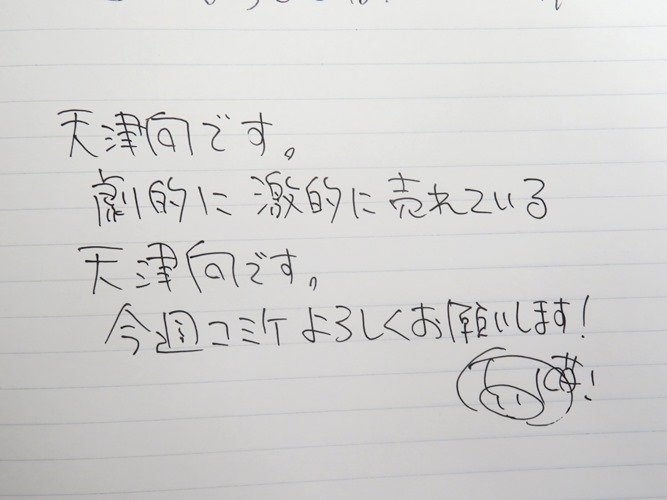 天津向です。
劇的に激的に売れている
天津向です。
今週コミケよろしくお願いします!